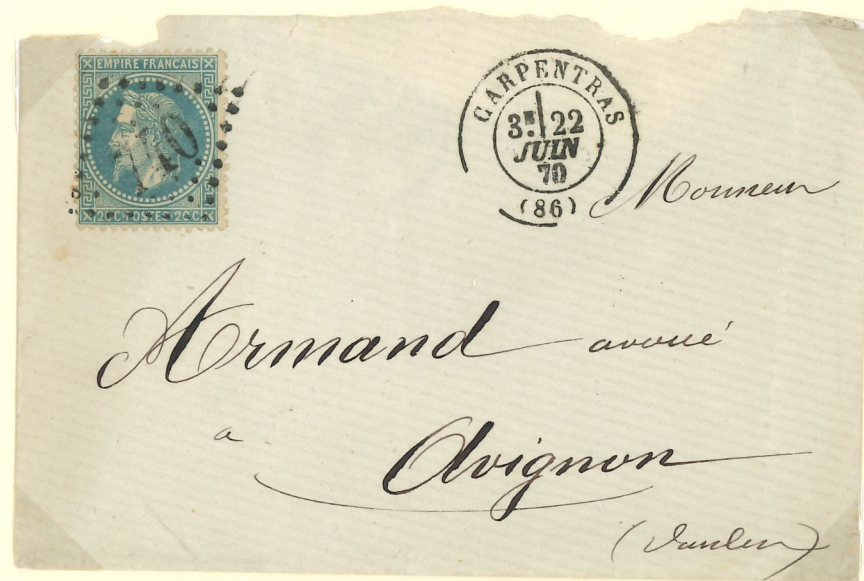 EMPIRE FRANCAIS
740
20 C POSTES 20 C
CARPENTRAS
3E 22
JUIN
70
(86)
Monsieur
Armand avoué
a Avignon
(Vaucluse)